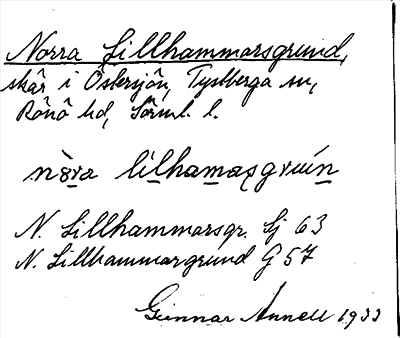 Norra Lillhammarsgrund,
skär i Östersjön, Tystberga sn,
Rönö hd, Sörml. l.
nòra lílhamaṣgrún
N. Lillhammarsgr. Sj 63
N. Lillhammargrund G 57
Gunnar Annell 1933